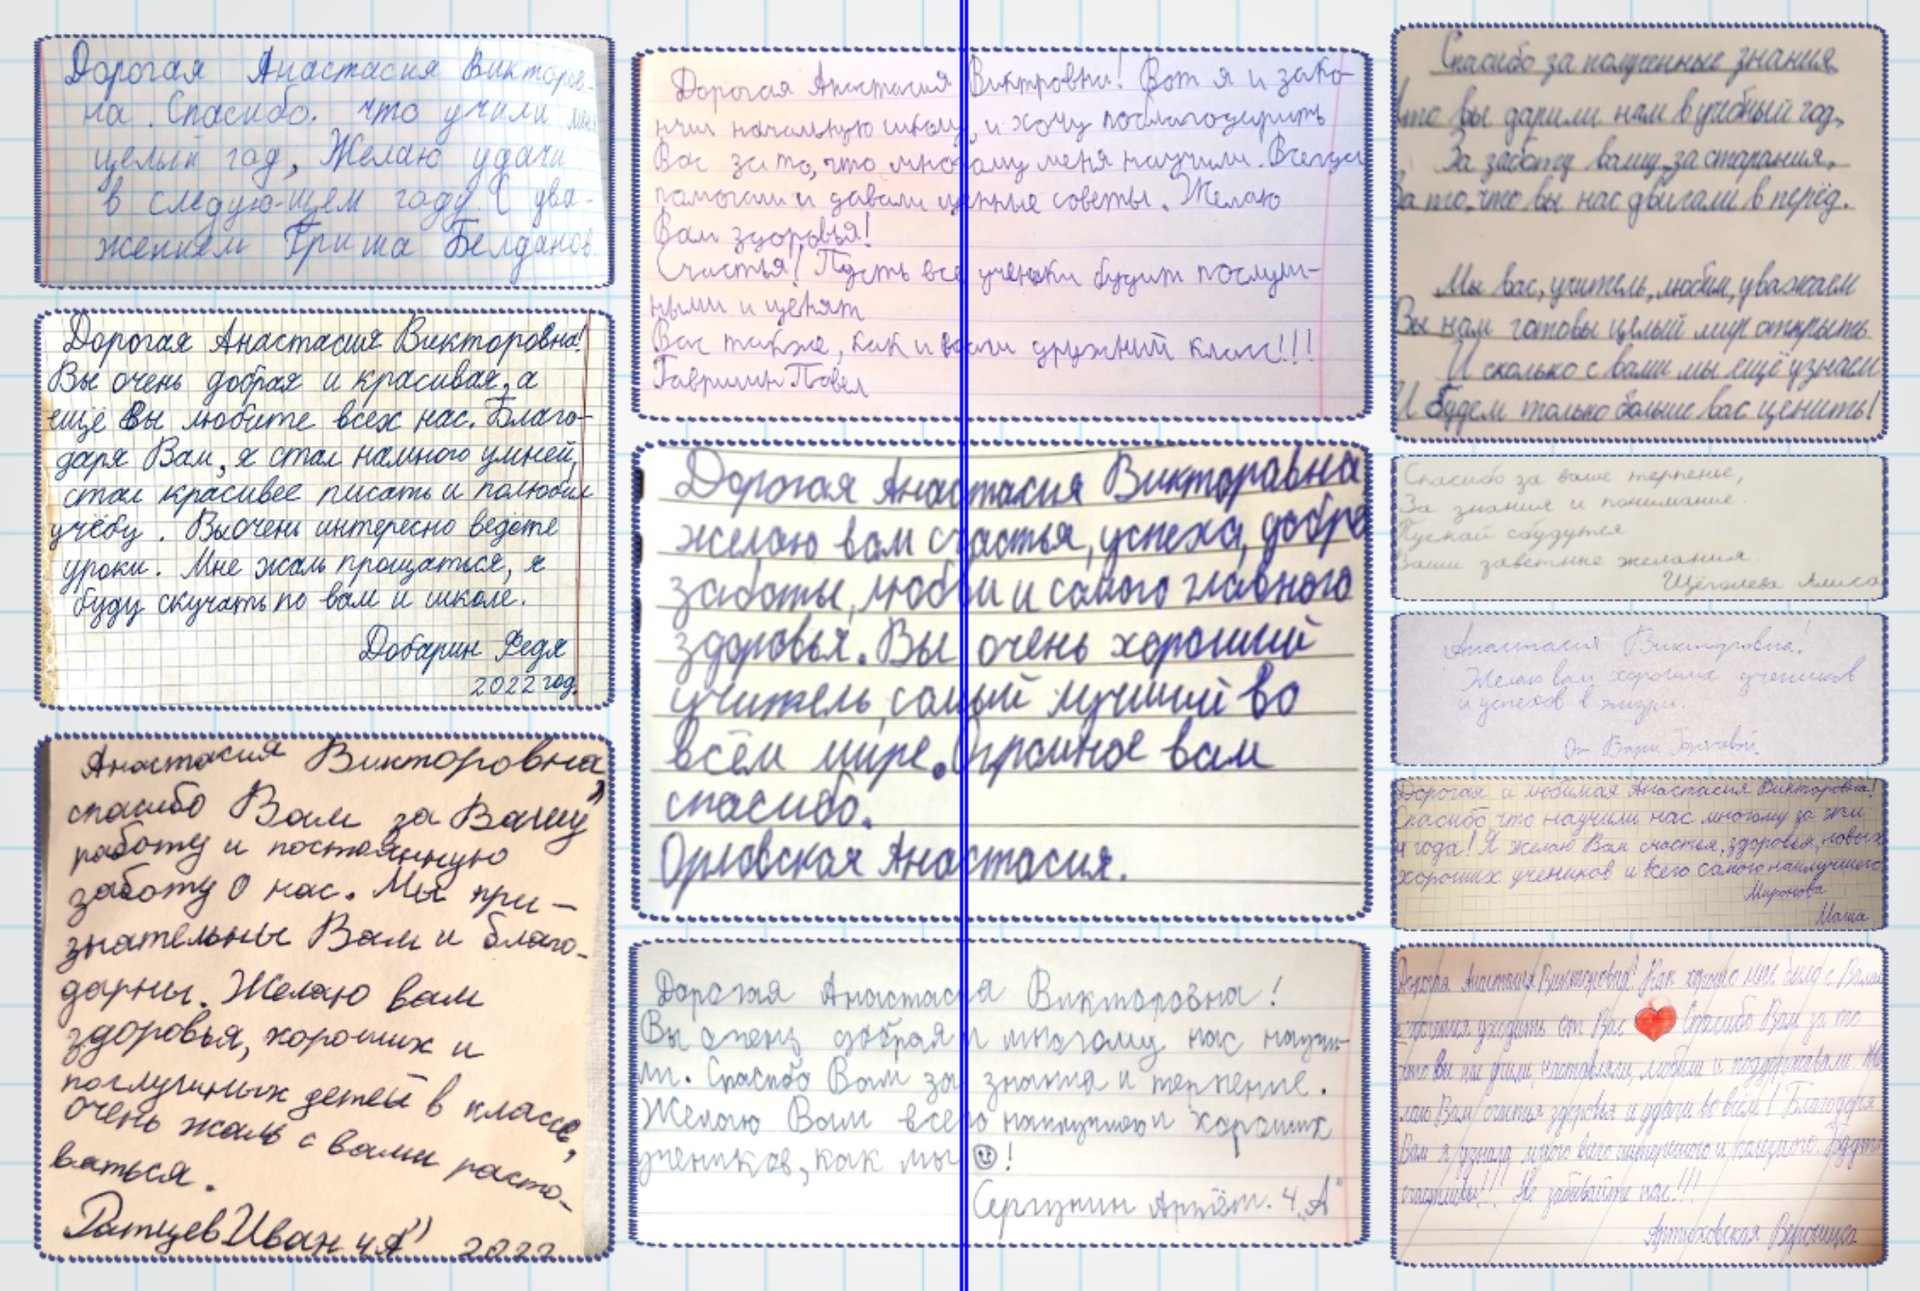 Дорогая Анастасия Викторов-
на. Спасибо. что учили
целый год, Желаю удачи
в следую-щем году. С ува-
жением Гриша Белданов
Дорогая Анастасия Викторовна!
Вы очень добрая и красивая, а
ещё вы любите всех нас. Благо-
даря Вам, я стал намного умней,
стал красивее писать и полюбил
учёбу. Вы очень интересно ведёте
уроки. Мне жаль прощаться, я
буду скучать по вам и школе.
Добарин Федя
2022 год.
Анастасия Викторовна,
спасибо Вам за Вашу
работу и постояннную
заботу о нас. Мы при-
знательны Вам и благо-
дарны. Желаю вам
здоровья, хороших и
послушных детей в классе,
очень жаль с вами расто-
ваться.
Иван 4 "А" 2022
Дорогая Анастасия Виктровна! Вот я и зако-
нчил начальную школу, и хочу поблагодарить
Вас за то, что многому меня научили. Всегда
памогали и давали ценные советы. Желаю
Вам здоровья!
Счастья! Пусть все ученики будут послуш-
ными и ценят
Вас также, как и наш дружный класс!!!
Гаврилин Павел
Дорогая Анастасия Викторавна
желаю вам счастья, успеха, добра
заботы, любви и самого главного
здоровья. Вы очень хороший
учитель, самый лучший во
всём мире. Огромное вам
спасибо.
Орловская Анастасия.
Дорогая Анастасия Викторовна!
Вы очень добрая и многому нас научи-
ли. Спасибо Вам за знания и терпение.
Желаю Вам всего и хороших
учеников, как мы !
Сергунин Артём. 4 "А"
Спасибо за полученные знания
Что вы дарили нам в учебный год,
За заботу вашу, за старания,
За то, что вы нас двигали в перёд.
Мы вас, учитель, любим, уважаем
Вы нам готовы целый мир открыть
И сколько с вами мы ещё узнаем
И будем только больше вас ценить!
Спасибо за ваше терпенье,
За знания и понимание.
Пускай сбудутся
Ваши заветные желания.
Щёголева Алиса
Анастасия Викторовна!
Желаю вам хороших учеников
и успехов в жизни.
От Вари
Дорогая и любимая Анастасия Викторовна!
Спасибо что научили нас многому за эти
4 года! Я желаю Вам счастья, здоровья, новых
хороших учеников и всего самого наилучшего
Миронова
Маша
Дорогая Анастасия Викторовна! Как хорошо мне было с Вами
уходить от Вас Спасибо Вам за то
что вы нас учили, наставляли, любили и поддерживали Же
лаю Вам счастья здоровья и удачи во всём! Благодаря
Вам я узнала много всего интересного и Будьте
счастливы!!! Не забывайте нас!!!
Артюховская Вероника